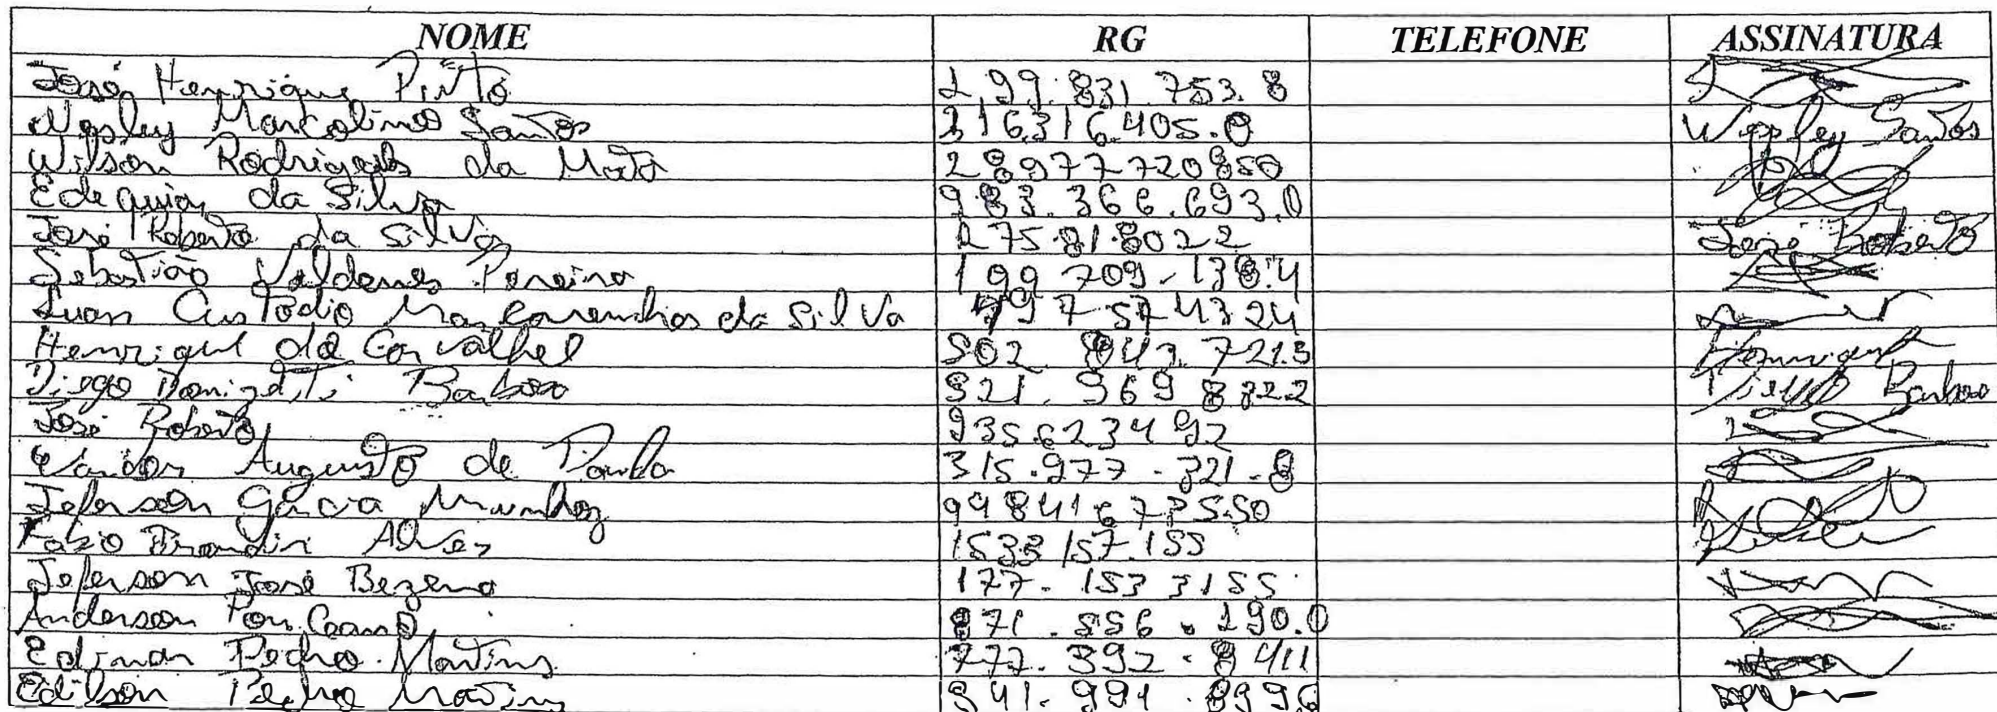 NOME RG TELEFONE ASSINATURA
José Henrique Pinto 299.831.753.8
Wesley Marcolino Santos 316316.405.0 Wesley Santos
Wilson Rodrigues da Mota 28977720850
Edequias da Silva 983.366.693.0
José Roberto da Silva 275.81.8022 José Roberto
Sebastião Valdenes Pereira 199 709-138.4
Luan Custodio Mascarenhas da Silva 497 57 43 24
Henrique de Carvalhel 502. 842. 721.3 Henrique
Diego Donizeti Barboso 321. 969 8322 Diego Barboso
José Roberto 9356234 92
Vander Augusto de Paula 315.977-321-8
Jeferson Garcia Munhoz 99841673550
Fabio Alves 1533 157.155
Jeferson José Bezerra 177-153 3155
Anderson 871.556.190.0
Edimar Pedro Martins 777-392-8411
Edilson Pedro Martins 341.991.8996